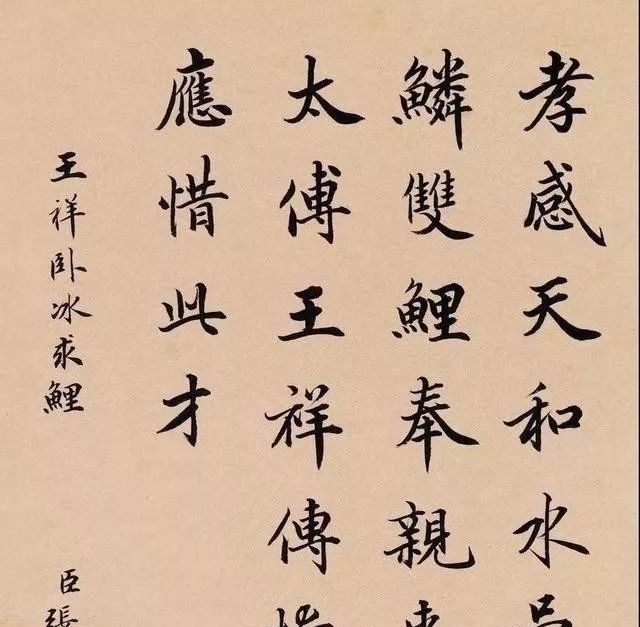 孝感天和水
鱗雙鯉奉親
太傅王祥傳
應惜此才
王祥卧冰求鯉
臣張